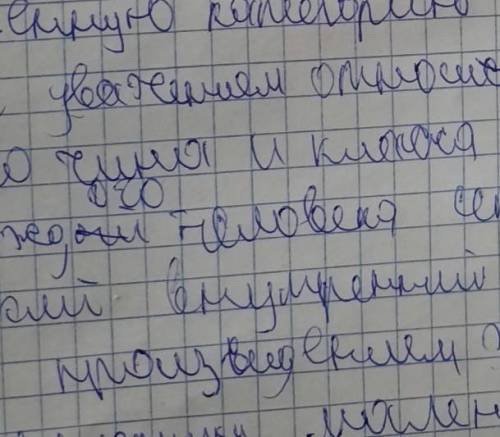 енную категорию
уважением относи
о чина и класса
ого
человека
внутренний
произведением
мален